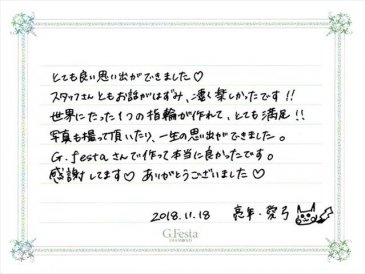 とても良い思い出ができました♡
スタッフさんともお話がはずみ、凄く楽しかったです!!
世界にたった1つの指輪が作れて、とても満足!!
写真も撮って頂いたり、一生の思い出ができました。
G.festaさんで作って本当に良かったです。
感謝してます♡ ありがとうございました♡
2018.11.18 亮年・愛弓
G.Festa